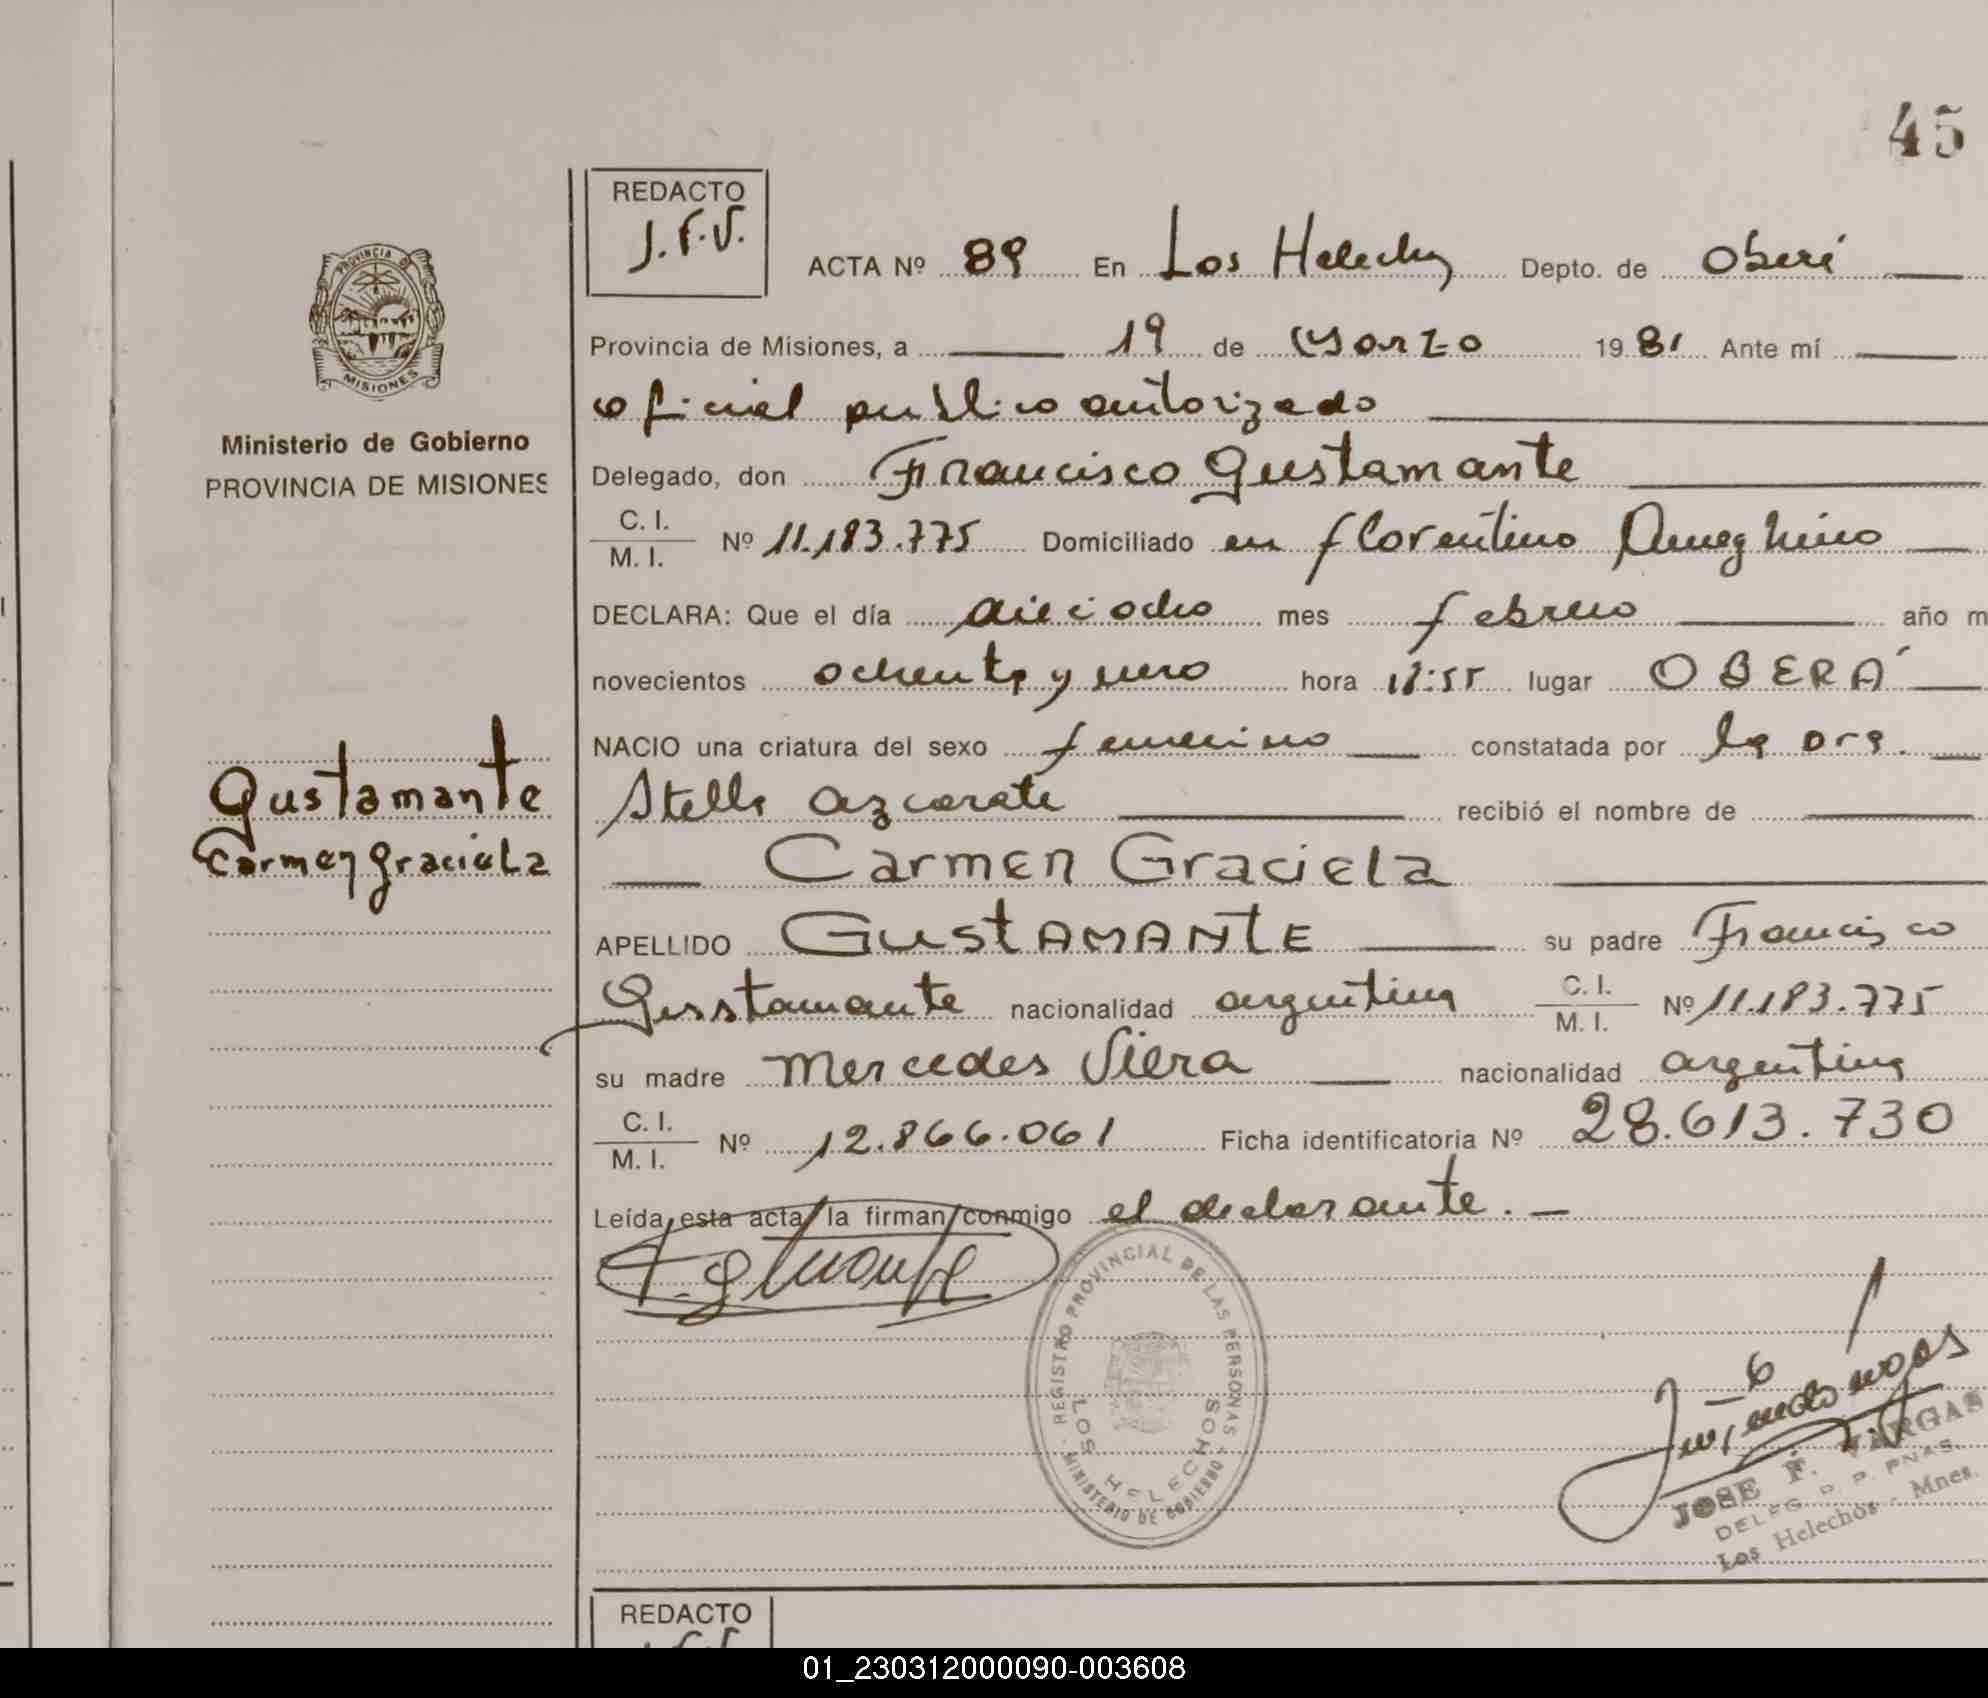 45
REDACTO
J.F.V.
ACTA Nº 89 En Los Helechos Depto. de Oberá
PROVINCIA DE
MISIONES
Provincia de Misiones, a 19 de Marzo 1981 Ante mí
oficial publico autorizado
Ministerio de Gobierno
PROVINCIA DE MISIONES
Delegado, don Francisco Gustamante
C. I.
M. I. Nº 11.183.775 Domiciliado en florentino Ameghino
DECLARA: Que el día dieciocho mes febrero año m
novecientos ochenta y uno hora 18:55 lugar OBERÁ
NACIO una criatura del sexo femenino constatada por la ora.
Gustamante
Carmen Graciela
Stella Azcarate recibió el nombre de
Carmen Graciela
APELLIDO GUSTAMANTE su padre Francisco
Gusstamante nacionalidad argentina C. I.
M. I. Nº 11.183.775
su madre Mercedes Viera nacionalidad argentina
C. I.
M. I. Nº 12.866.061 Ficha identificatoria Nº 28.613.730
Leída esta acta la firman conmigo el declarante.
REGISTRO PROVINCIAL DE LAS PERSONAS
MINISTERIO DE GOBIERNO
LOS HELECHOS
JOSE F. VARGAS
DELEG. R. P. PNAS.
Los Helechos - Mnes.
REDACTO
01_230312000090-003608